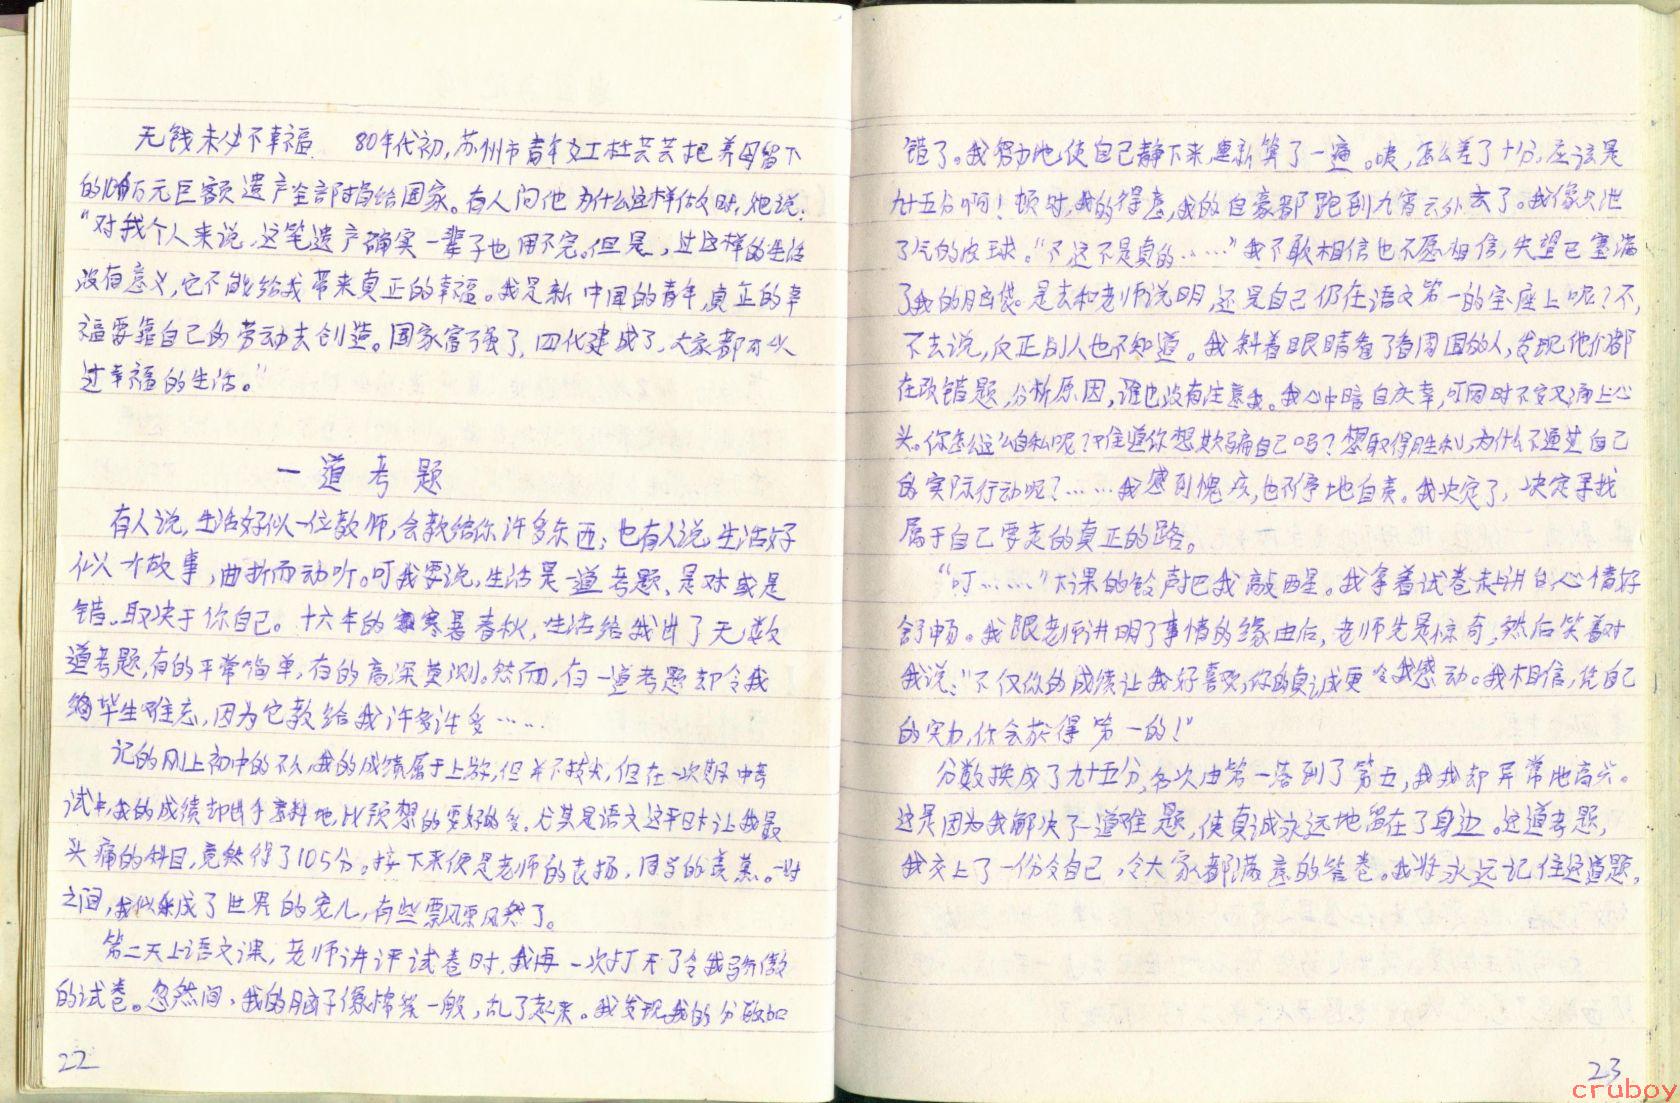 无钱未必不幸福 80年代初,苏州市青年女工杜芸芸把养母留下
的10万元巨额遗产全部捐给国家。有人问他为什么这样做时,她说:
“对我个人来说,这笔遗产确实一辈子也用不完。但是,过这样的生活
没有意义,它不能给我带来真正的幸福。我是新中国的青年,真正的幸
福要靠自己的劳动去创造。国家富强了,四化建成了,大家都可以
过幸福的生活。”
一道考题
有人说,生活好似一位教师,会教给你许多东西;也有人说,生活好
似一个故事,曲折而动听。可我要说,生活是一道考题,是对或是
错。取决于你自己。十六年的寒暑春秋,生活给我出了无数
道考题,有的平常简单,有的高深莫测。然而,有一道考题却令我
毕生难忘,因为它教给我许多许多……
记的刚上初中的不久,我的成绩属于上游,但并不拔尖,但在一次期中考
试中,我的成绩却出乎意料地,比预想的要好的多。尤其是语文这平日大让我最
头痛的科目,竟然得了105分。接下来便是老师的表扬,同学的羡慕。一时
之间,我似乎成了世界的宠儿,有些飘飘然了。
第二天上语文课,老师讲评试卷时,我再一次打开了令我骄傲
的试卷。忽然间,我的脑子像棉絮一般,乱了起来。我发现我的分数加
错了。我努力地使自己静下来,重新算了一遍。咦,怎么差了十分,应该是
九十五分啊!顿时,我的得意,我的自豪都跑到九霄云外去了。我像只泄
了气的皮球。“不这不是真的……”我不敢相信也不愿相信,失望已塞满
了我的脑袋。是去和老师说明,还是自己仍在语文第一的宝座上呢?不,
不去说,反正别人也不知道。我斜着眼睛看了看周围的人,发现他们都
在改错题,分析原因,谁也没有注意我。我心中暗自庆幸,可同时不安又涌上心
头。你怎么这么自私呢?难道你想欺骗自己吗?想取得胜利,为什么不通过自己
的实际行动呢?……我感到愧疚,也不停地自责。我决定了,决定寻找
属于自己要走的真正的路。
“叮……”下课的铃声把我敲醒。我拿着试卷走上讲台,心情好
舒畅。我跟老师讲明了事情的缘由后,老师先是惊奇,然后笑着对
我说:“不仅你的成绩让我好喜欢,你的真诚更令我感动。我相信,凭自己
的实力,你会获得第一的!”
分数换成了九十五分,名次由第一落到了第五,我我却异常地高兴。
这是因为我解决了一道难题,使真诚永远地留在了身边。这道考题,
我交上了一份令自己,令大家都满意的答卷。我将永远记住这道题。
22
23
cruboy